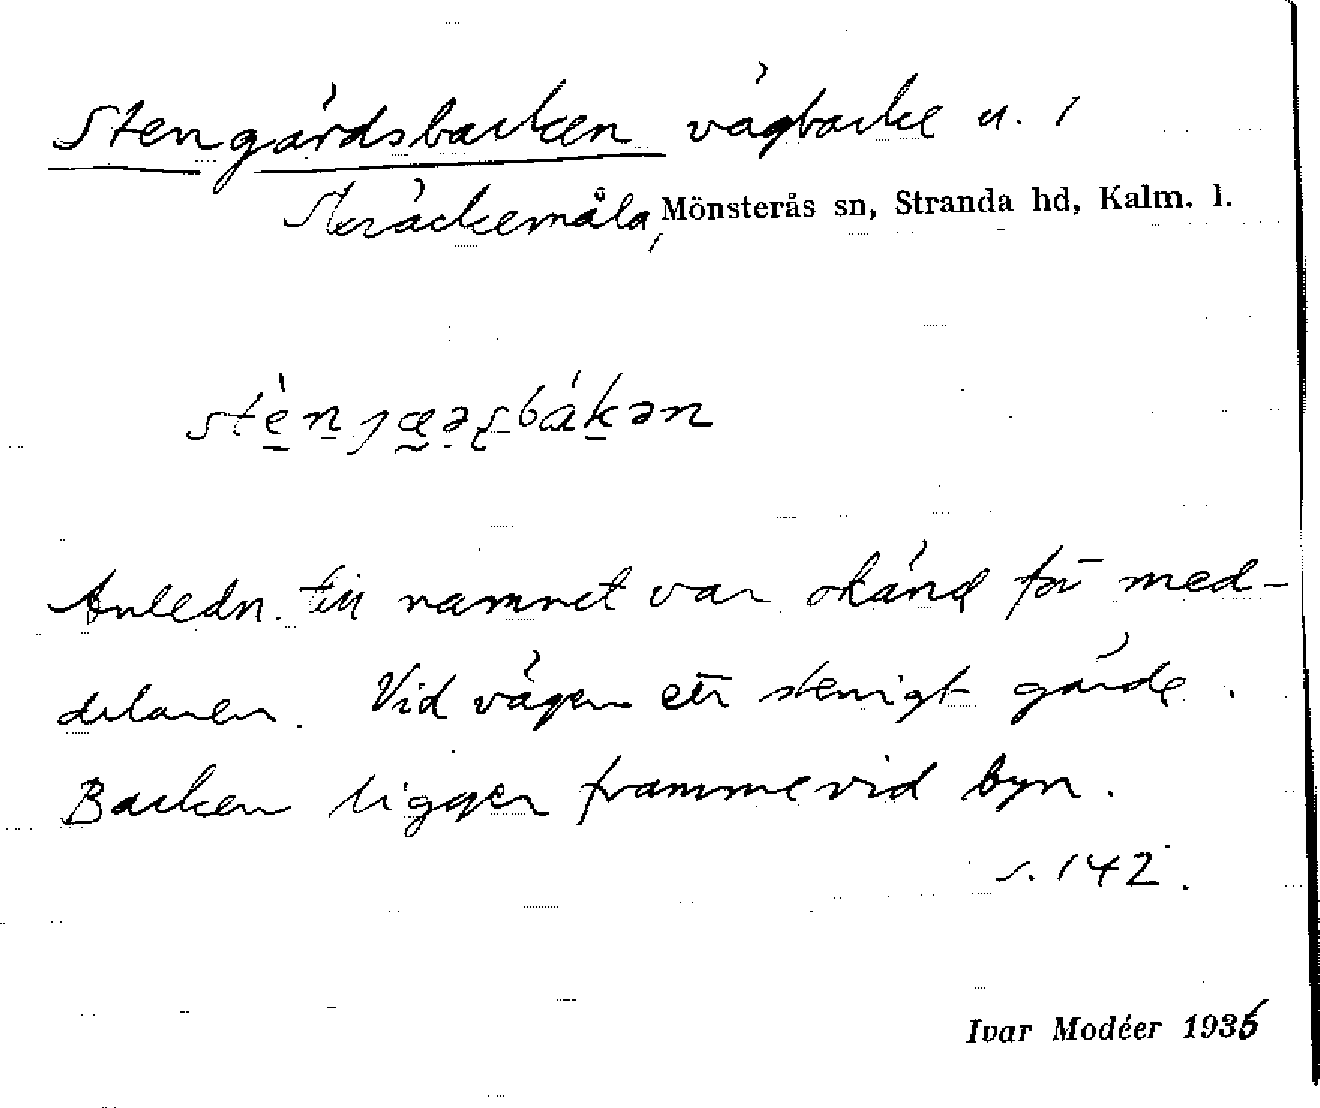 Stengärdsbacken vägbacke n. i
Skräckemåla, Mönsterås sn, Stranda hd, Kalm. l.
stèngæəʂbákən
Anledn. till namnet var okänd för med-
delaren. Vid vägen ett stenigt gärde.
Backen ligger framme vid byn.
s. 142.
Ivar Modéer 1936